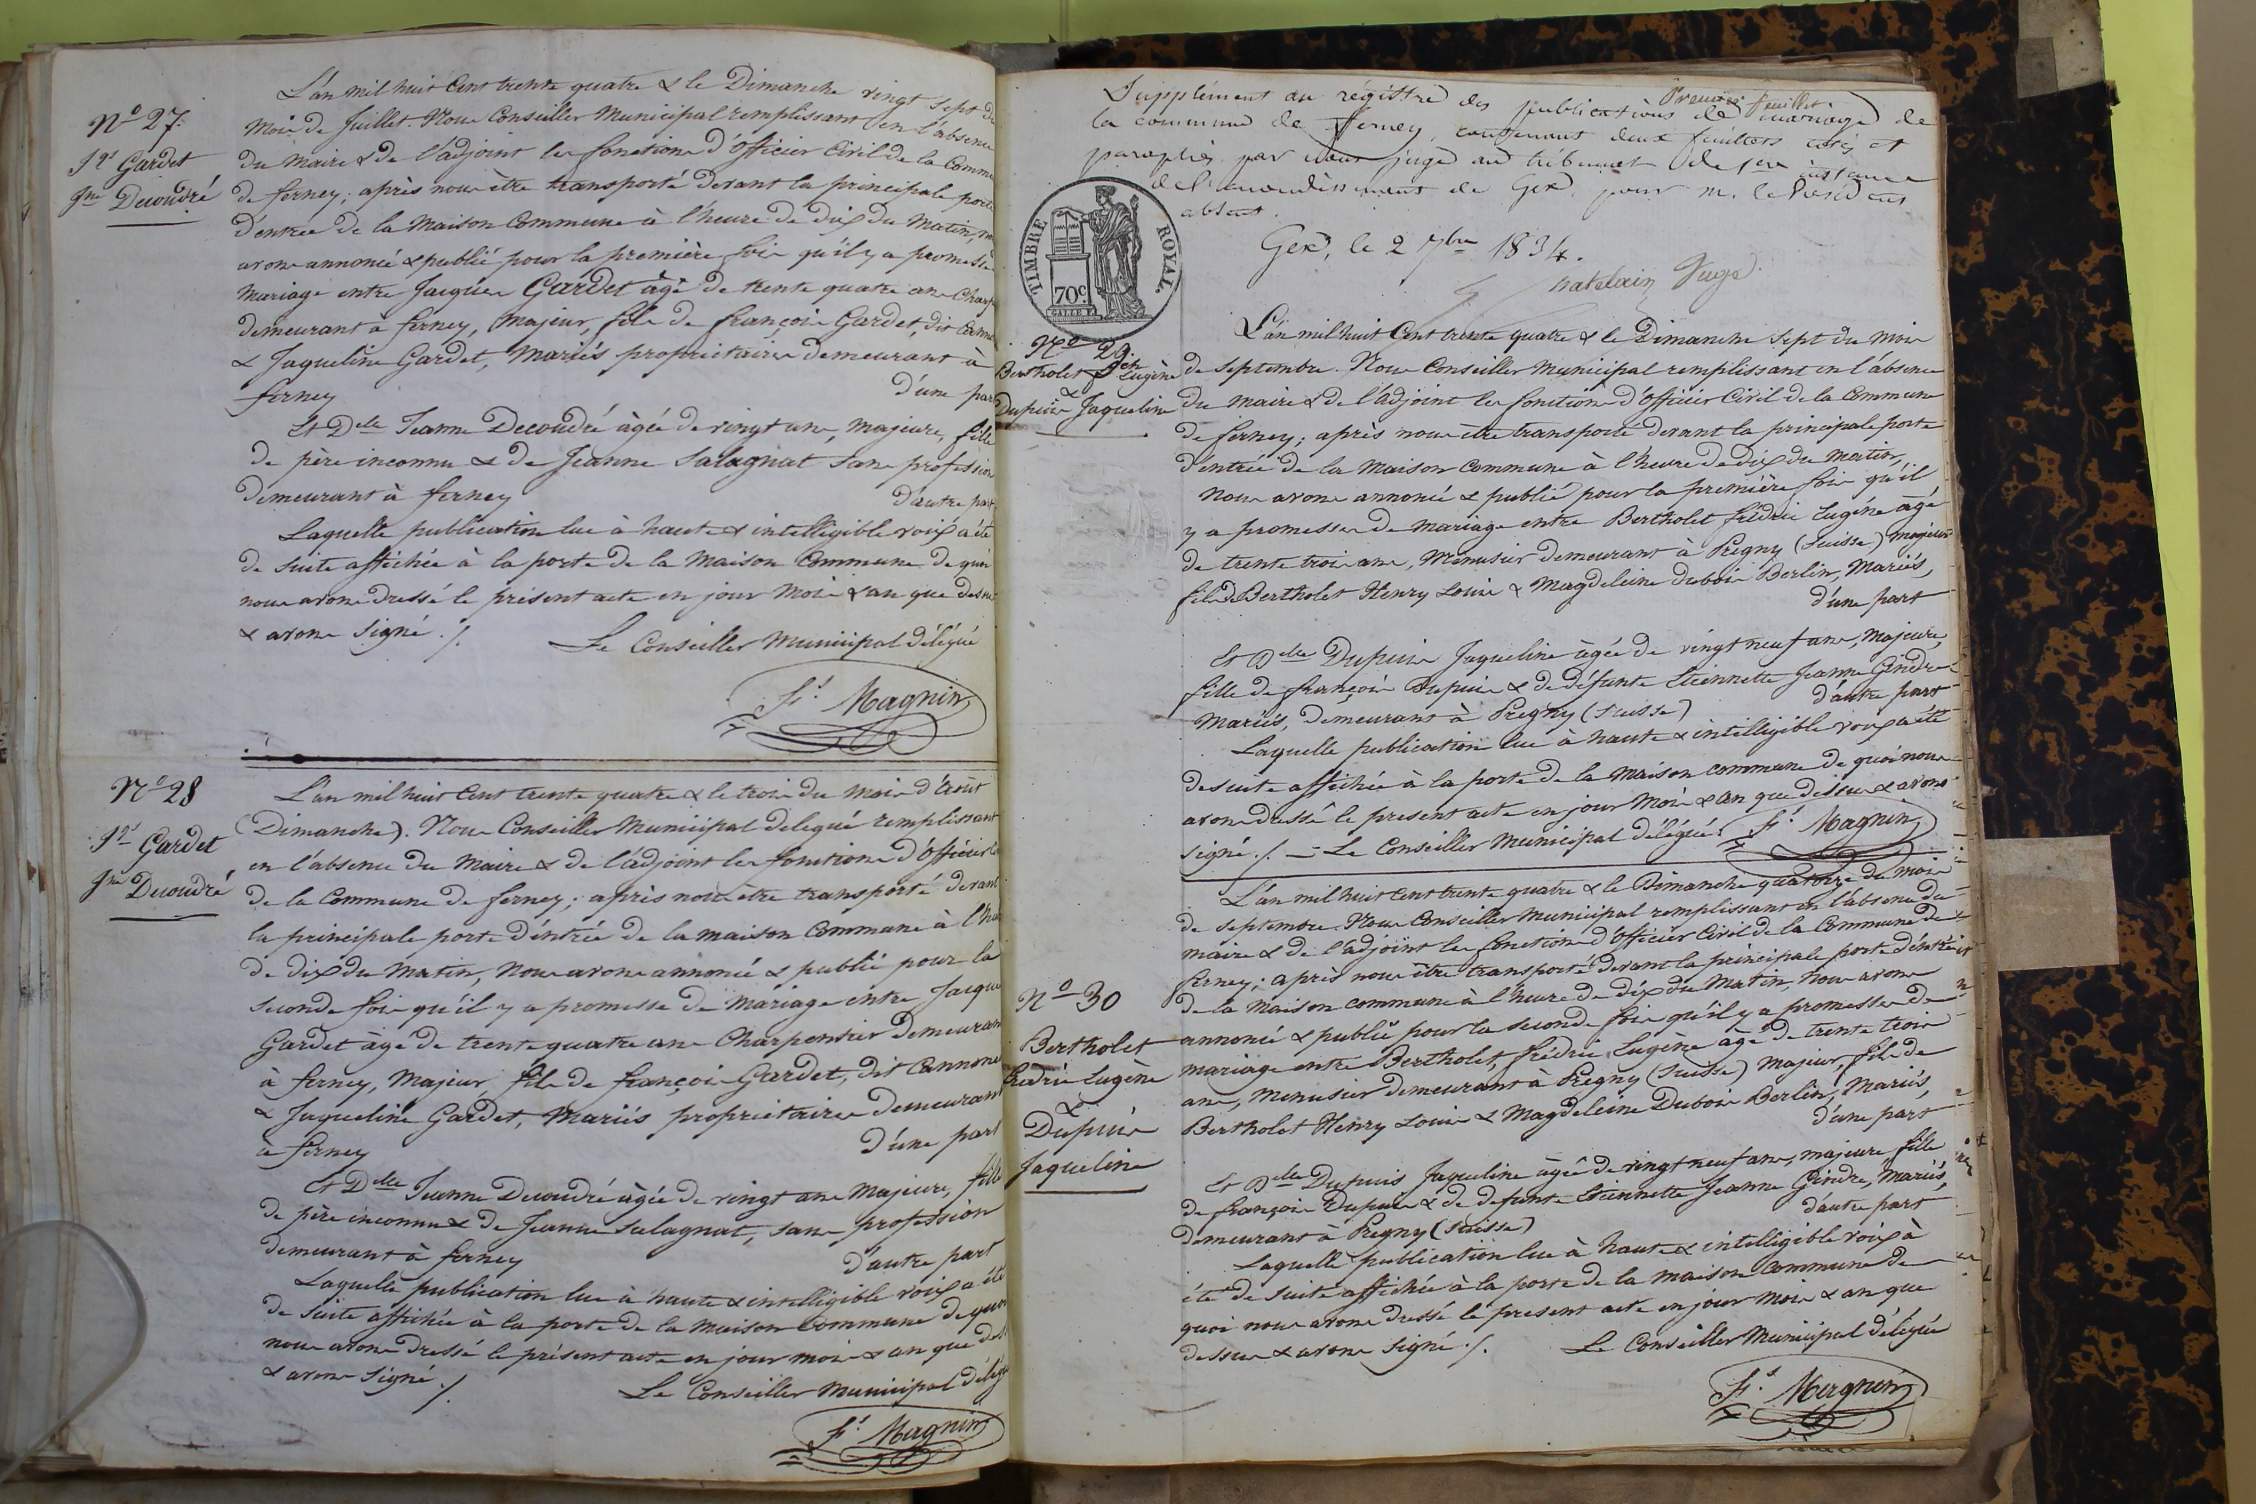 N.o 27.
Jqs Gardet
Jne Decoudré
L'an mil huit Cent trente quatre & le Dimanche vingt sept du
mois de Juillet. Nous Conseiller Municipal remplissant en l'absence
du Maire & de l'adjoint les fonctions d'officier Civil de la Comm
de ferney; après nous être transporté devant la principale porte
d'entrée de la Maison Commune à l'heure de dix du Matin,
avons annoncé & publié pour la première fois qu'il y a promesse
Mariage entre Jacques Gardet âgé de trente quatre ans Charp
demeurant à ferney, Majeur, fils de françois Gardet, dit Canno
& Jaqueline Gardet, Mariés propriétaires demeurant à
ferney d'une part
Et Dlle Jeanne Decoudré âgée de vingt ans, majeure, fille
de père inconnu & de Jeanne Salagnat sans profession
demeurant à ferney d'autre part
Laquelle publication lue à haute & intelligible voix a été
de suite affichée à la porte de la Maison Commune de quoi
nous avons dressé le présent acte en jour Mois & an que dessus
& avons signé ./. Le Conseiller Municipal délégué
fs. Magnin
N.o 28
Jqs Gardet
Jne Decoudré
L'an mil huit Cent trente quatre & le trois du Mois d'Août
(Dimanche). Nous Conseiller Municipal délégué remplissant
en l'absence du Maire & de l'adjoint les fonctions d'officier
de la Commune de ferney; après nous être transporté devant
la principale porte d'entrée de la maison Commune à l'heu
de dix du Matin, Nous avons annoncé & publié pour la
seconde fois qu'il y a promesse de Mariage entre Jacques
Gardet âgé de trente quatre ans Charpentier demeurant
à ferney, Majeur fils de françois Gardet, dit Cannone
& Jaqueline Gardet, Mariés propriétaires demeurant
à ferney d'une part
Et Dlle Jeanne Decoudré âgée de vingt ans Majeure, fille
de père inconnu & de Jeanne Salagnat, sans profession
demeurant à ferney d'autre part
Laquelle publication lue à haute & intelligible voix a été
de suite affichée à la porte de la Maison Commune de quoi
nous avons dressé le présent acte en jour mois & an que dess
& avons signé ./. Le Conseiller Municipal délég
fs. Magnin
Premier feuillet
Supplément au régistre des publications de mariage de
la commune de Ferney, contenant deux feuillets cotés et
paraphés par nous juge au tribunal de 1ere instance
de l'arrondissement de Gex, pour M. le Président
absent.
Gex, le 2 7bre 1834.
Chatelain Juge.
TIMBRE ROYAL.
70c
N.o 29
Bertholet fric Eugène
&
Dupuis Jaqueline
L'an mil huit Cent trente quatre & le Dimanche sept du mois
de septembre. Nous Conseiller Municipal remplissant en l'absence
du maire & de l'adjoint les fonctions d'officier Civil de la Commune
de ferney; après nous être transporté devant la principale porte
d'entrée de la Maison Commune à l'heure de dix du matin,
Nous avons annoncé & publié pour la première fois qu'il
y a promesse de mariage entre Bertholet frédric Eugène âgé
de trente trois ans, Menusier demeurant à Pregny (Suisse) majeur
fils de Bertholet Henry Louis & Magdeleine Dubois Berlin, Mariés,
d'une part
Et Dlle Dupuis Jaqueline âgée de vingt neuf ans, Majeure,
fille de françois Dupuis & de défunte Etiennette Jeanne Gindre
Mariés, demeurant à Pregny (Suisse) d'autre part
Laquelle publication lue à haute & intelligible voix a été
de suite affichée à la porte de la Maison commune de quoi nous
avons dressé le present acte en jour Mois & an que dessus & avons
signé ./. — Le Conseiller Municipal délégué: fs. Magnin
N.o 30
Bertholet
frédric Eugène
&
Dupuis
Jaqueline
L'an mil huit cent trente quatre & le Dimanche quatorze du mois
de septembre. Nous Conseiller Municipal remplissant en l'absence du
maire & de l'adjoint les fonctions d'officier Civil de la Commune de
ferney; après nous être transporté devant la principale porte d'entrée
de la Maison commune à l'heure de dix du Matin, Nous avons
annoncé & publié pour la seconde fois qu'il y a promesse de
mariage entre Bertholet, frédric Eugène âgé de trente trois
ans, Menusier demeurant à Pregny (Suisse) Majeur, fils de
Bertholet Henry Louis & Magdeleine Dubois Berlin, Mariés,
d'une part
Et Dlle Dupuis Jaqueline âgée de vingt neuf ans, majeure fille
de françois Dupuis & de defunte Etiennette Jeanne Gindre, Mariés,
demeurant à Pregny (Suisse) d'autre part
Laquelle publication lue à haute & intelligible voix à
été de suite affichée à la porte de la Maison commune de
quoi nous avons dressé le present acte en jour Mois & an que
dessus & avons signé ./. Le Conseiller Municipal délégué
fs. Magnin